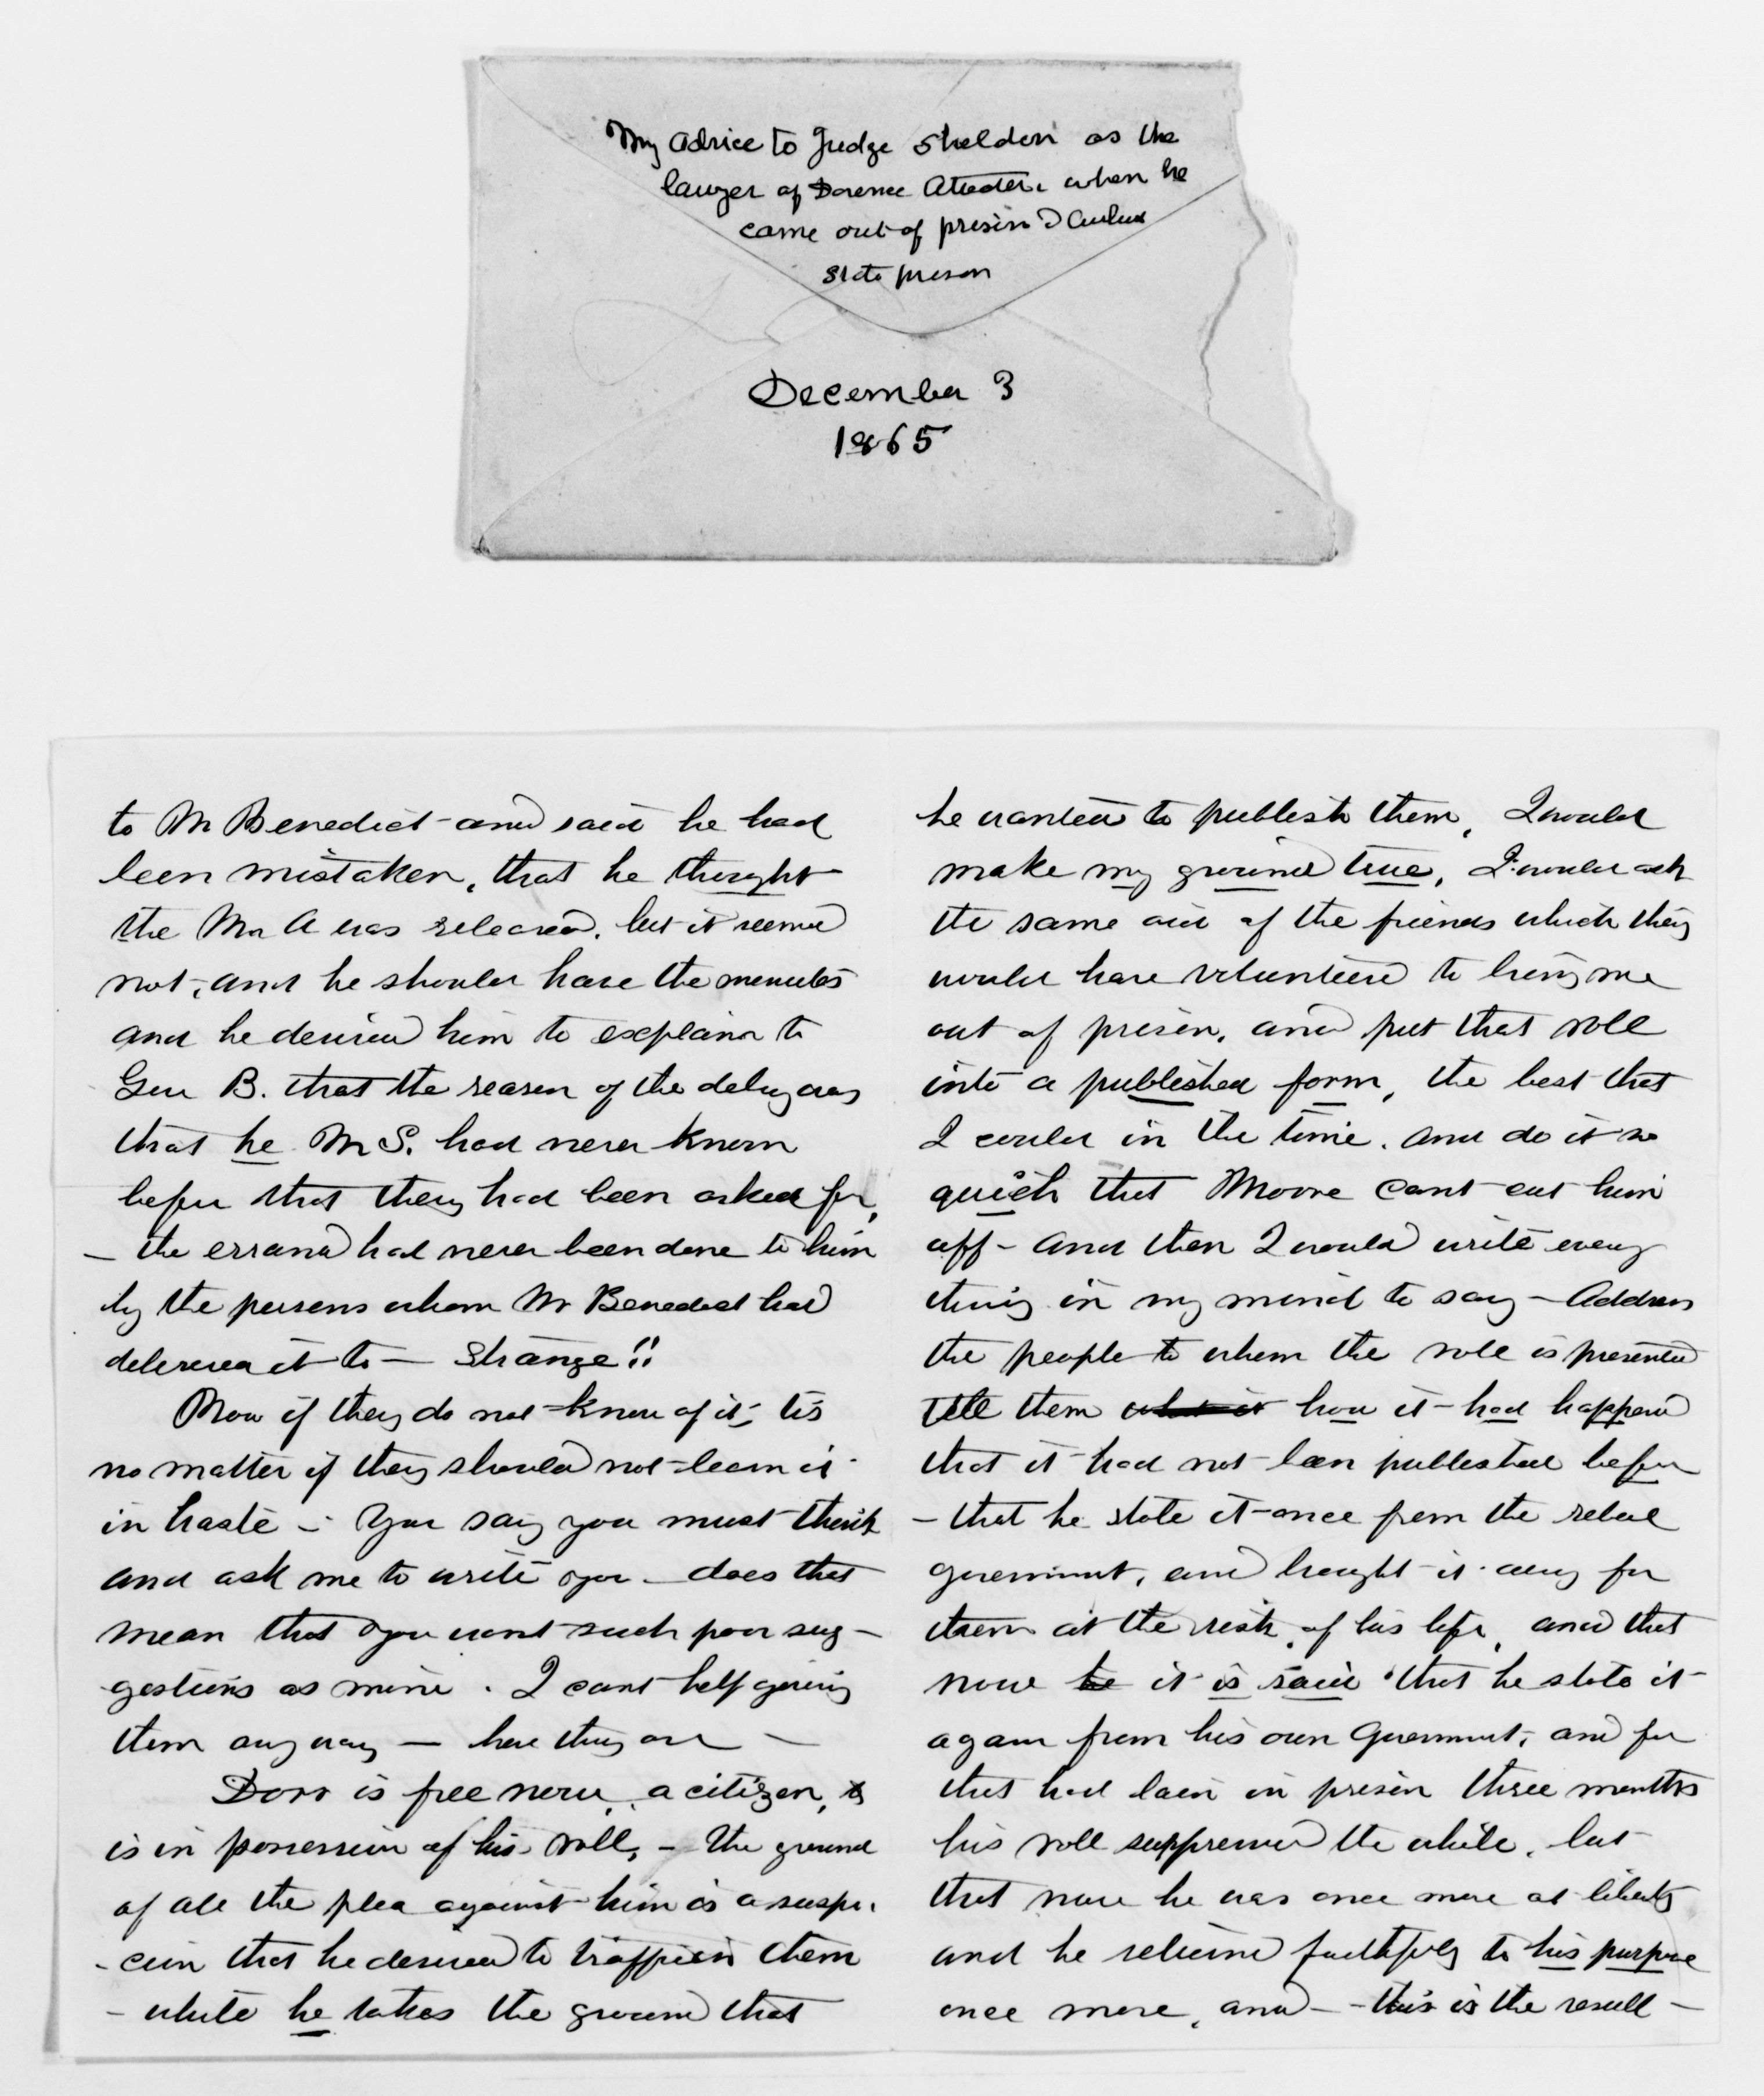 My advice to Judge Sheldon as the
lawyer of Dorence Atwater. when he
came out of prison Auburn
State prison
December 3
1865
to Mr Benedict and said he had
been mistaken, that he thought
the Mr A was released, but it seemed
not, and he should have the minutes
and he desired him to explain to
Gen B. that the reason of the delay was
that he Mr S. had never known
before that they had been asked for,
– the errand had never been done to him
by the persons whom Mr Benedict had
delivered it to – Strange!!
Now if they do not know of it, tis
no matter if they should not learn it
in haste – You say you must think
and ask me to write you – does that
mean that you want such poor sug-
gestions as mine. I cant help giving
them any way – here they are –
Dorr is free now, a citizen, &
is in possession of his roll, – The ground
of all the plea against him is a suspi-
-cion that he desired to traffic in them
– while he takes the ground that
he wanted to publish them, I would
make my ground true, I would ask
the same aid of the friends which they
would have volunteered to bring me
out of prison, and put that roll
into a published form, the best that
I could in the time, and do it so
quick that Moore cant cut him
off – and then I would write every
thing in my mind to say – Address
the people to whom the roll is presented
tell them what it how it had happened
that it had not been published before
– that he stole it once from the rebel
government, and brought it away for
them at the risk of his life, and that
now he it is said that he stole it
again from his own Government, and for
that had lain in prison three months
his roll suppressed the while, but
that now he was once more at liberty
and he returned faithfully to his purpose
once more, and – this is the result –